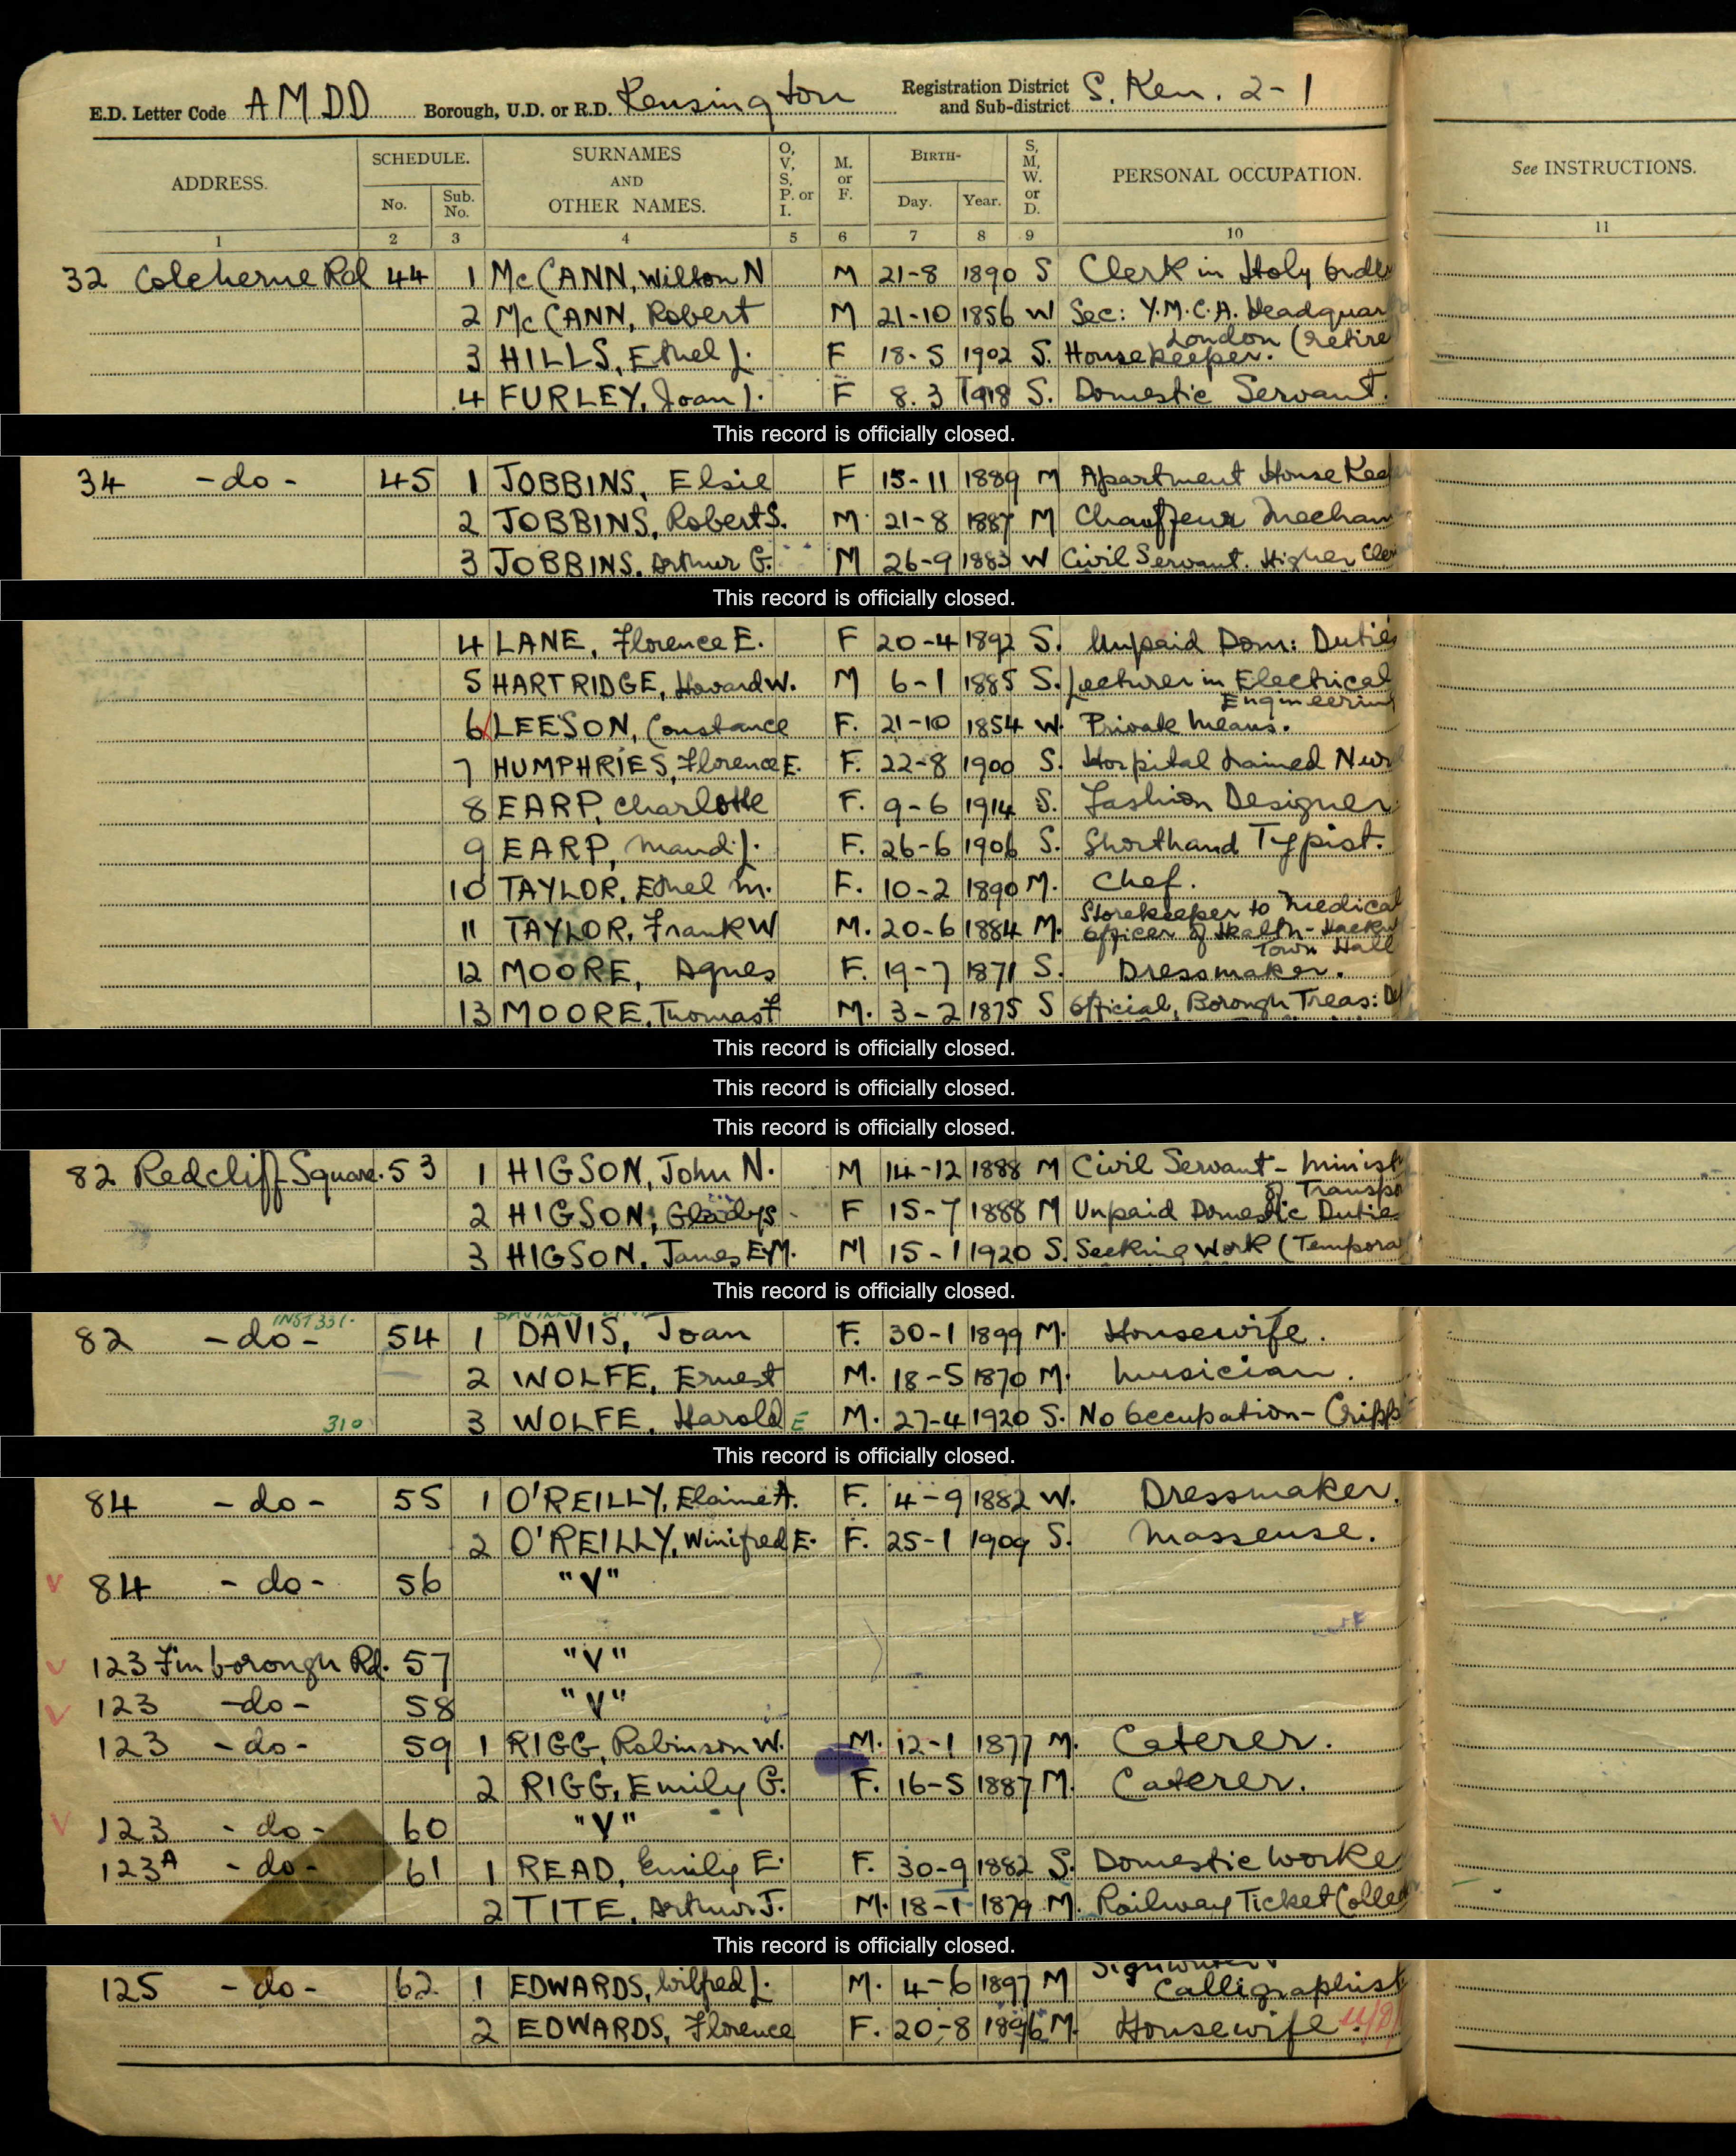 E.D. Letter Code AMDD Borough, U.D. or R.D. Kensington Registration District and Sub-district S. Ken. 2-1
ADDRESS. SCHEDULE. No. Sub. No. SURNAMES AND OTHER NAMES. O, V, S, P. or I. M. or F. BIRTH- Day. Year. S, M, W. or D. PERSONAL OCCUPATION. See INSTRUCTIONS.
1 2 3 4 5 6 7 8 9 10 11
32 Coleherne Rd 44 1 McCANN, Wilson N M 21-8 1890 S Clerk in Holy Order
2 McCANN, Robert M 21-10 1856 W Sec: Y.M.C.A. Headquar
London (retire
3 HILLS, Ethel J. F 18-5 1902 S. Housekeeper.
4 FURLEY, Joan J. F 8.3 1918 S. Domestic Servant.
This record is officially closed.
34 -do- 45 1 JOBBINS, Elsie F 15-11 1889 M Apartment House Kee
2 JOBBINS, Robert S. M 21-8 1887 M Chauffeur Mechan
3 JOBBINS, Arthur G. M 26-9 1883 W Civil Servant. Higher Cler
This record is officially closed.
4 LANE, Florence E. F 20-4 1892 S. Unpaid Dom: Duties
5 HARTRIDGE, Howard W. M 6-1 1885 S. Lecturer in Electrical
Engineering
6 LEESON, Constance F. 21-10 1854 W. Private Means.
7 HUMPHRIES, Florence E. F. 22-8 1900 S. Hospital trained Nur
8 EARP, Charlotte F. 9-6 1914 S. Fashion Designer
9 EARP, Maud J. F. 26-6 1906 S. Shorthand Typist.
10 TAYLOR, Ethel M. F. 10-2 1890 M. Chef.
11 TAYLOR, Frank W M. 20-6 1884 M. Storekeeper to Medical
Officer of Health - Hackn
Town Hall
12 MOORE, Agnes F. 19-7 1871 S. Dressmaker.
13 MOORE, Thomas F M. 3-2 1875 S Official, Borough Treas: De
This record is officially closed.
This record is officially closed.
This record is officially closed.
82 Redcliff Square. 53 1 HIGSON, John N. M 14-12 1888 M Civil Servant - Minist
of Transpo
2 HIGSON, Gladys F 15-7 1888 M Unpaid Domestic Duties
3 HIGSON, James E.M. M 15-1 1920 S. Seeking Work (Tempora
This record is officially closed.
82 -do- 54 1 DAVIS, Joan F. 30-1 1899 M. Housewife.
2 WOLFE, Ernest M. 18-5 1870 M. Musician.
310 3 WOLFE, Harold E M. 27-4 1920 S. No Occupation - Cripp
This record is officially closed.
84 -do- 55 1 O'REILLY, Elaine A. F. 4-9 1882 W. Dressmaker.
2 O'REILLY, Winifred E. F. 25-1 1909 S. Masseuse.
V 84 -do- 56 "V"
V 123 Finborough Rd. 57 "V"
V 123 -do- 58 "V"
123 -do- 59 1 RIGG, Robinson W. M. 12-1 1877 M. Caterer.
2 RIGG, Emily G. F. 16-5 1887 M. Caterer.
V 123 -do- 60 "V"
123A -do- 61 1 READ, Emily E. F. 30-9 1882 S. Domestic Worke
2 TITE, Arthur J. M. 18-1 1879 M. Railway Ticket Collec
This record is officially closed.
125 -do- 62 1 EDWARDS, Wilfred J. M. 4-6 1897 M Signwriter
Calligraphist
2 EDWARDS, Florence F. 20-8 1896 M. Housewife.